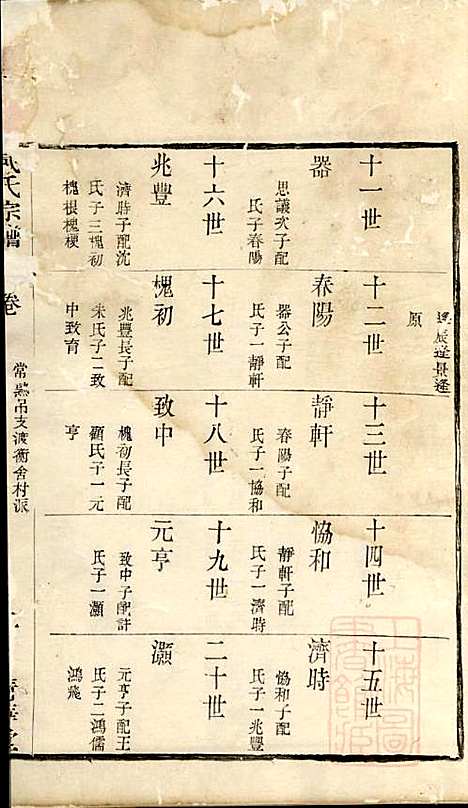 逢辰逢景逢
原
十一世
器
思議次子配
氏子春陽
十二世
春陽
器公子配
氏子一靜軒
十三世
靜軒
春陽子配
氏子一協和
十四世
協和
靜軒子配
氏子一濟時
十五世
濟時
協和子配
氏子一兆豐
十六世
兆豐
濟時子配沈
氏子三槐初
槐根槐梗
十七世
槐初
兆豐長子配
朱氏子二致
中致育
十八世
致中
槐初長子配
顧氏子一元
亨
十九世
元亨
致中子配許
氏子一灝
二十世
灝
元亨子配王
氏子二鴻儒
鴻飛
氏宗譜
卷
常熟吊支渡衡舍村派